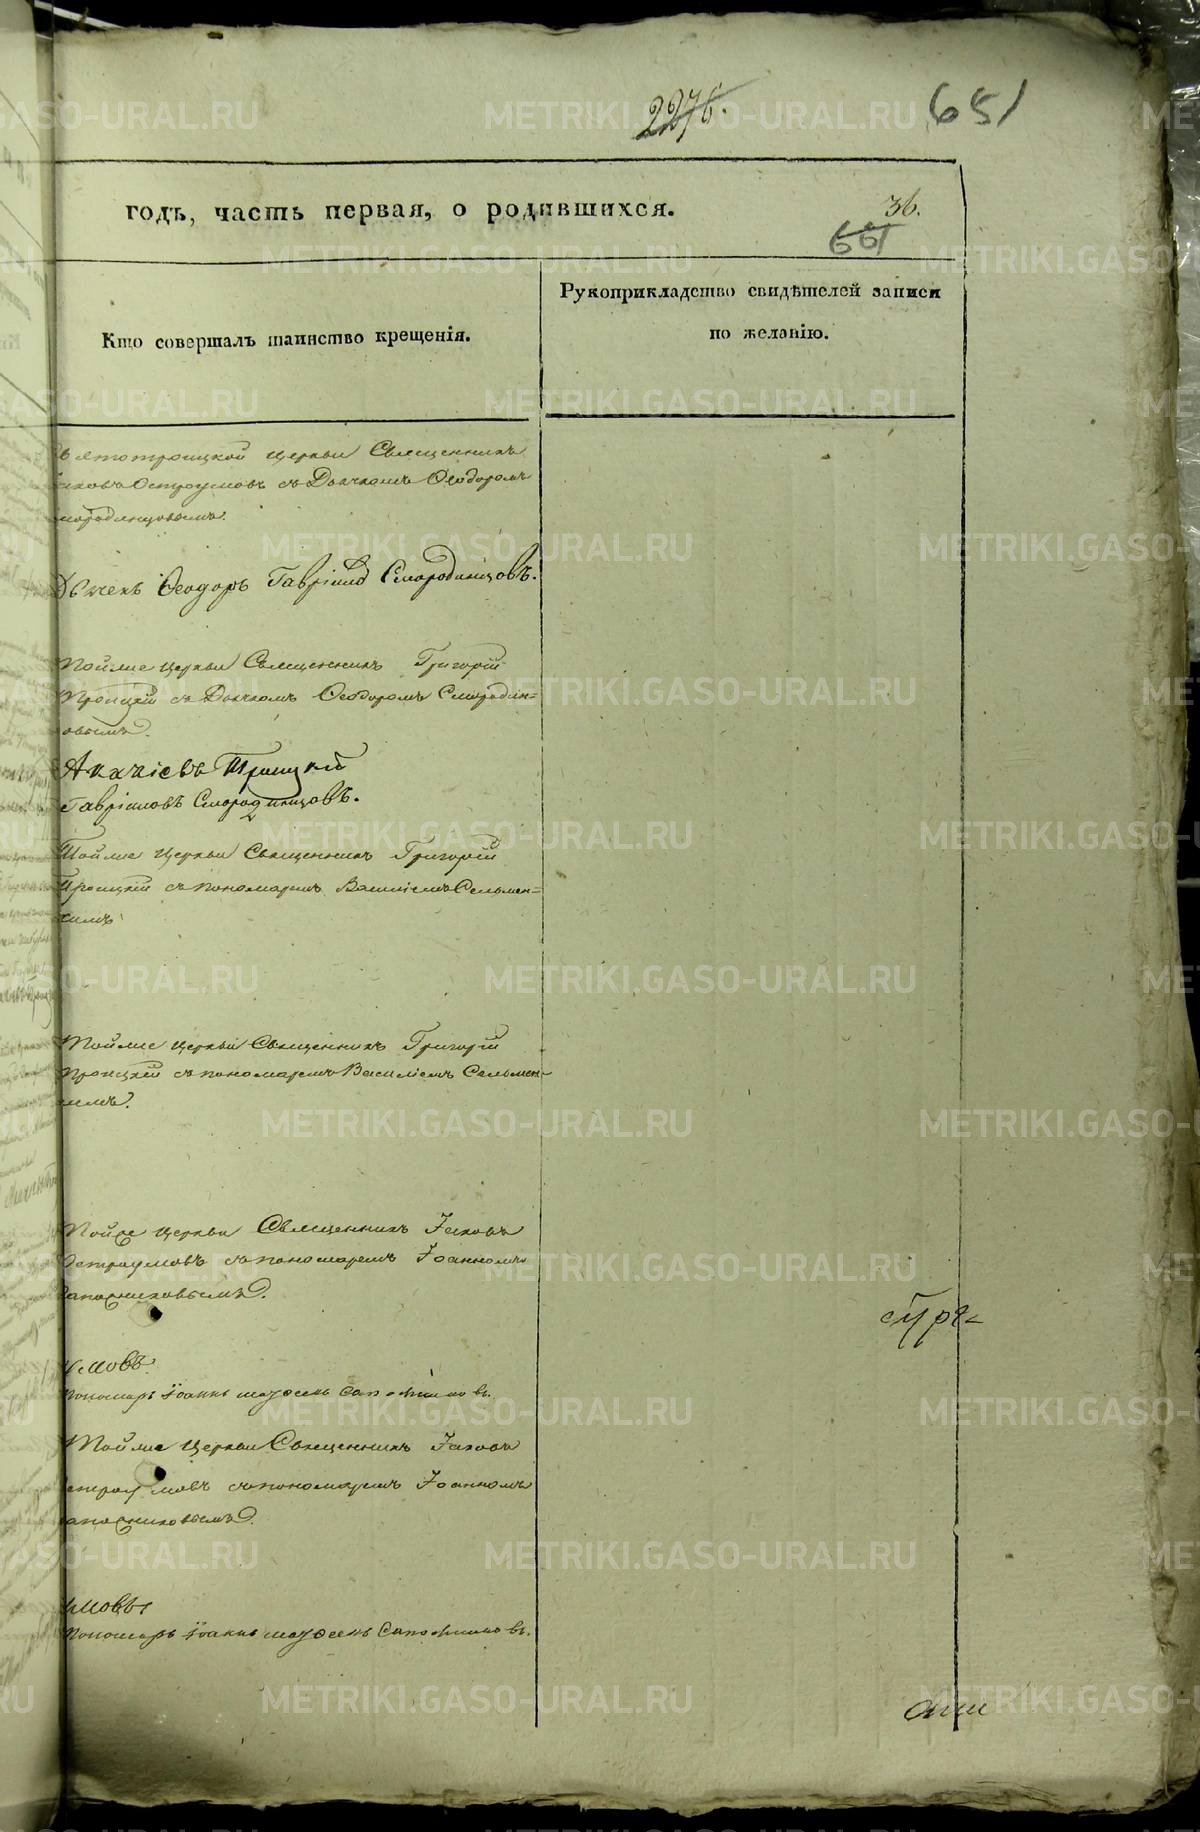 2276.
651
годъ, часть первая, о родившихся.
36.
661
Кто совершалъ таинство крещенія.
Рукоприкладство свидѣтелей записи
по желанію.
церкви Священникъ
Остроумовъ съ Дьячкомъ Ѳеодоромъ
Ѳеодоръ Гавріиловъ Смородинцовъ.
Тойже церкви Священникъ Григорій
Троицкій съ Дьячкомъ Ѳеодоромъ Смородин=
овымъ.
Троицкій
Гавріиловъ Смородинцовъ.
Тойже Церкви Священникъ Григорій
Троицкій съ пономаремъ Василіемъ Сельмен=
Тойже церкви Священникъ Григорій
Троицкій съ пономаремъ Василіемъ Сельмен=
Тойже церкви Священникъ Іаковъ
Остроумовъ съ пономаремъ Іоанномъ
Сапожниковымъ.
умовъ.
Пономарь Іоаннъ Сапожниковъ.
Тойже Церкви Священникъ Іаковъ
Остроумовъ съ пономаремъ Іоанномъ
Сапожниковымъ.
умовъ
Пономарь Іоаннъ Сапожниковъ.
METRIKI.GASO-URAL.RU